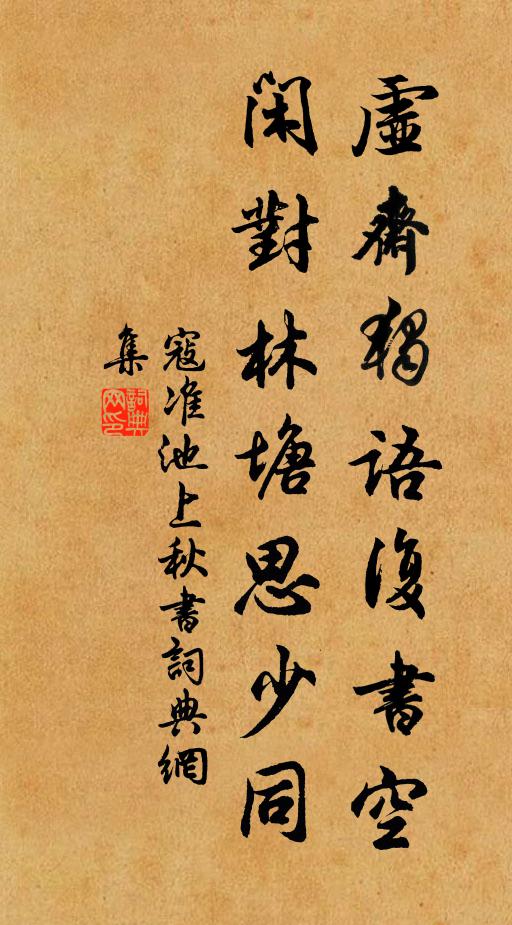 虛齋獨語復書空
閑對林塘思少同
寇准池上秋書詞典網
集
詞典
网印